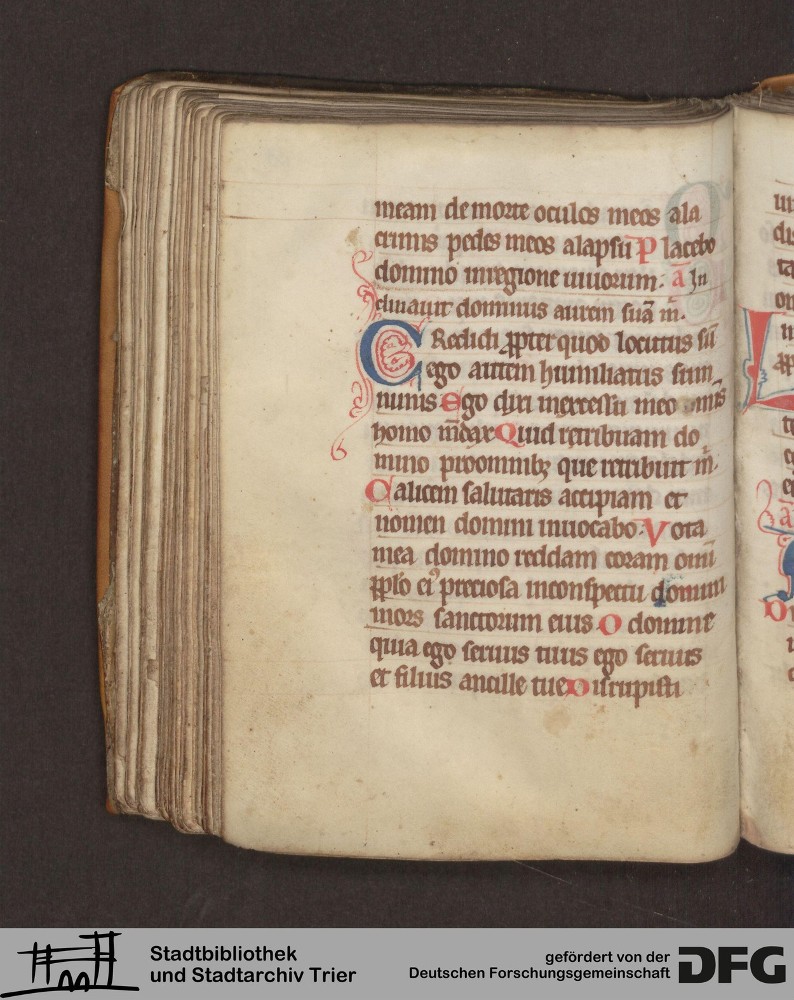 meam de morte oculos meos a la
crimis pedes meos alapsu P lacebo
domino inregione uiuorum. a̅ In
clinauit dominus aurem sua̅ m̅.
CRedidi ꝓpter quod locutus su̅
ego autem humiliatus sum
nimis Ego dixi inexcessu meo omīs
homo me̅dax Quid retribuam do
mino proomnibꝫ que retribuit m̅.
Calicem salutaris accipiam et
nomen domini inuocabo. Vota
mea domino reddam coram omi̅
pplo ei⁹ preciosa inconspectu domini
mors sanctorum eius O domine
quia ego seruus tuus ego seruus
et filius ancille tue Disrupisti
Stadtbibliothek
und Stadtarchiv Trier
gefördert von der
Deutschen Forschungsgemeinschaft
DFG